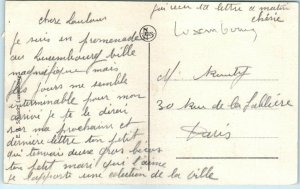 j'ai reçu ta lettre ce matin
chérie
chere Loulou
Je suis en promenade
au Luxembourg ville
magnifique mais
les jours me semble
interminable pour mon
je te le dirai
sur ma prochaine et
derniere lettre ton petit
qui t'envoi douse gros baise
ton petit mari qui t'aime
je t'apporte une colection de la ville
Luxembourg
M.
30 rue de la Sablière
Paris